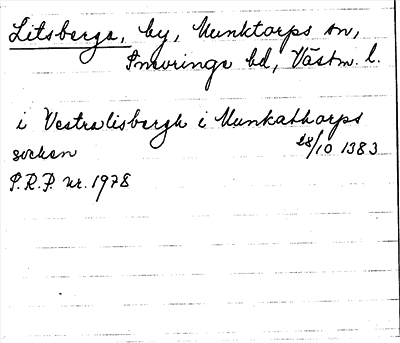 Litsberga, by, Munktorps sn,
Snevringe hd, Västm. l.
i Vestralisbergh i Munkathorps
socken 28/10 1383
S.R.P. nr. 1978